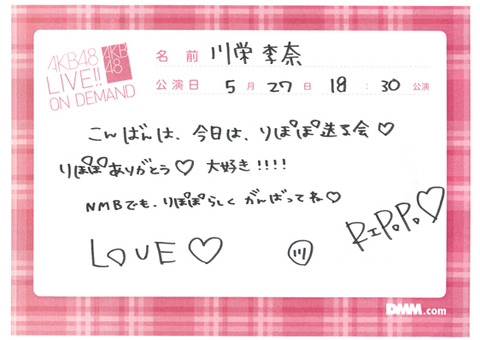 AKB48
LIVE!!
ON DEMAND
AKB
48
名前 川栄李奈
公演日 5月27日 18:30 公演
こんばんは、今日は、りぽぽ送る会♡
りぽぽありがとう♡ 大好き!!!!
NMBでも、りぽぽらしく がんばってね♡
LOVE♡
川
RIPOPO♡
DMM.com